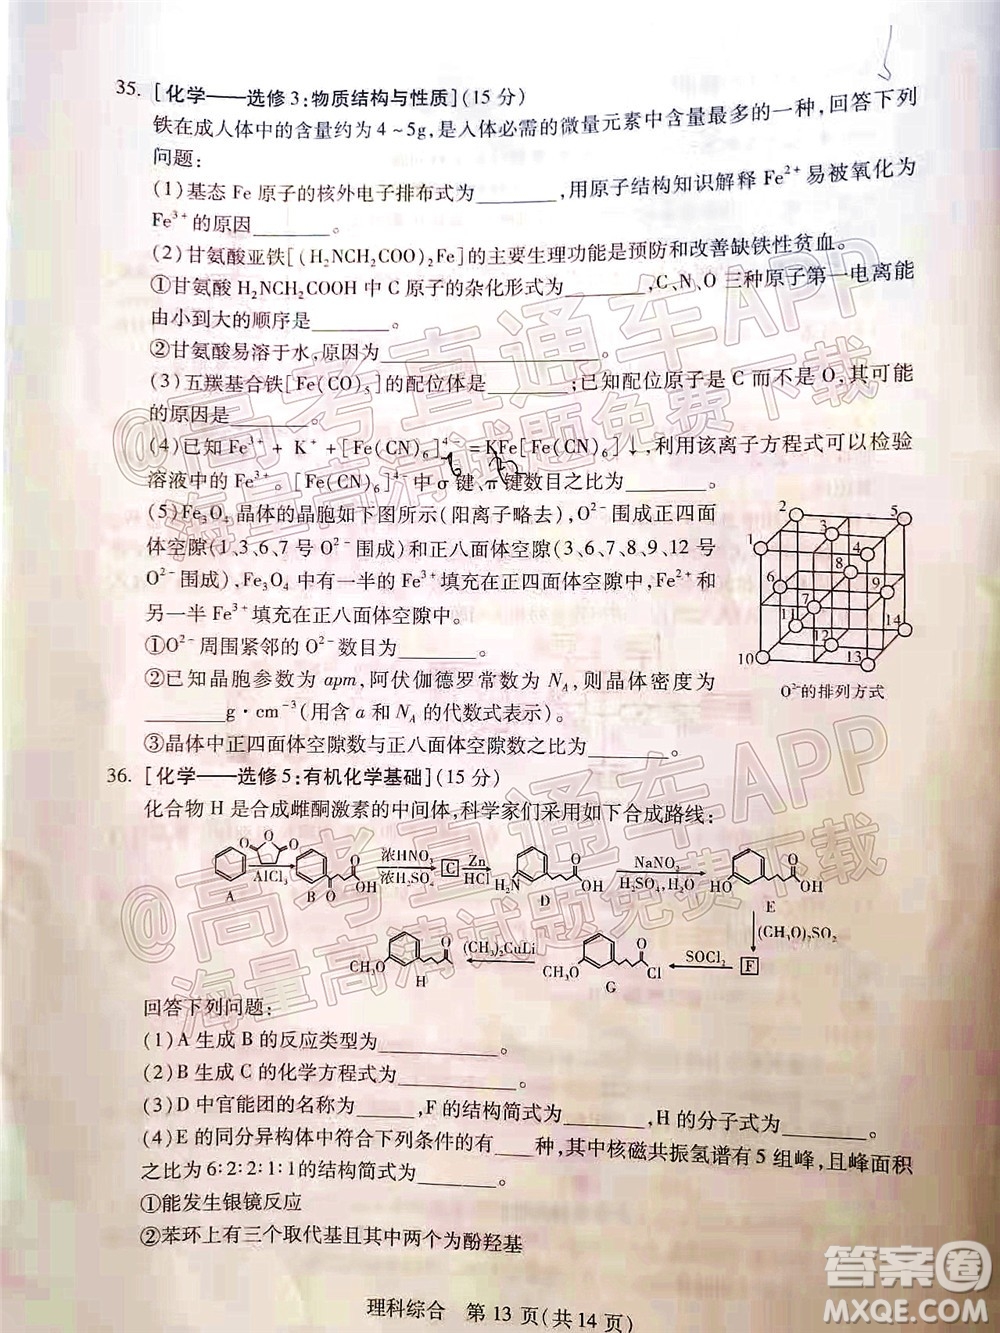 35. [化学——选修3:物质结构与性质](15分)
铁在成人体中的含量约为4~5g,是人体必需的微量元素中含量最多的一种,回答下列
问题:
(1)基态Fe原子的核外电子排布式为________,用原子结构知识解释Fe²⁺易被氧化为
Fe³⁺的原因________。
(2)甘氨酸亚铁[(H₂NCH₂COO)₂Fe]的主要生理功能是预防和改善缺铁性贫血。
①甘氨酸H₂NCH₂COOH中C原子的杂化形式为________,C、N、O三种原子第一电离能
由小到大的顺序是________。
②甘氨酸易溶于水,原因为________________。
(3)五羰基合铁[Fe(CO)₅]的配位体是________;已知配位原子是C而不是O,其可能
的原因是________。
(4)已知Fe³⁺+K⁺+[Fe(CN)₆]⁴⁻=KFe[Fe(CN)₆]↓,利用该离子方程式可以检验
溶液中Fe³⁺。[Fe(CN)₆]⁴⁻中σ键、π键数目之比为________。
(5)Fe₃O₄晶体的晶胞如下图所示(阳离子略去),O²⁻围成正四面
体空隙(1、3、6、7号O²⁻围成)和正八面体空隙(3、6、7、8、9、12号
O²⁻围成),Fe₃O₄中有一半的Fe³⁺填充在正四面体空隙中,Fe²⁺和
另一半Fe³⁺填充在正八面体空隙中。
①O²⁻周围紧邻的O²⁻数目为________。
②已知晶胞参数为apm,阿伏伽德罗常数为N_A,则晶体密度为
________g·cm⁻³(用含a和N_A的代数式表示)。
③晶体中正四面体空隙数与正八面体空隙数之比为________。
1 2 3 4 5 6 7 8 9 10 11 12 13 14
O²⁻的排列方式
36. [化学——选修5:有机化学基础](15分)
化合物H是合成雌酮激素的中间体,科学家们采用如下合成路线:
A O O O AlCl₃ B O OH 浓HNO₃ 浓H₂SO₄ C Zn HCl H₂N O OH D NaNO₂ H₂SO₄,H₂O HO O OH E
(CH₃)₂SO₂
CH₃O O H (CH₃)₂CuLi CH₃O O Cl G SOCl₂ F
回答下列问题:
(1)A生成B的反应类型为________。
(2)B生成C的化学方程式为________。
(3)D中官能团的名称为_____,F的结构简式为________,H的分子式为________。
(4)E的同分异构体中符合下列条件的有____种,其中核磁共振氢谱有5组峰,且峰面积
之比为6:2:2:1:1的结构简式为________。
①能发生银镜反应
②苯环上有三个取代基且其中两个为酚羟基
理科综合 第13页(共14页)
@高考直通车APP
海量高清试题免费下载
@高考直通车APP
海量高清试题免费下载
答案圈
MXQE.COM